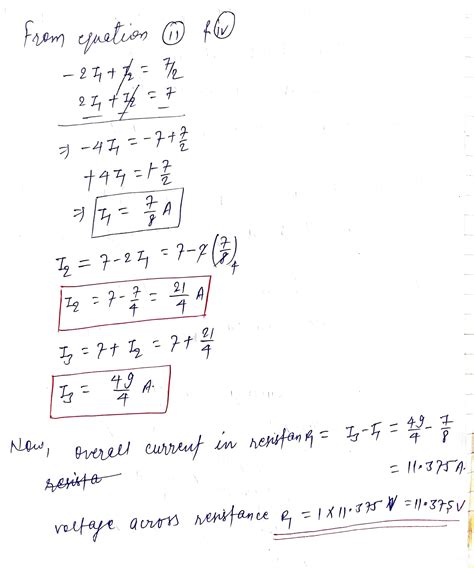 From equation (ii) & (iv)
-2I₁ + I₂ = 7/2
2I₁ + I₂ = 7
⇒ -4I₁ = -7 + 7/2
+4I₁ = +7/2
⇒ I₁ = 7/8 A
I₂ = 7 - 2I₁ = 7 - 2(7/8)4
I₂ = 7 - 7/4 = 21/4 A
I₃ = 7 + I₂ = 7 + 21/4
I₃ = 49/4 A.
Now, overall current in resistan R₁ = I₃ - I₁ = 49/4 - 7/8
resista = 11.375 A.
voltage across resistance R₁ = 1 × 11.375 V = 11.375 V